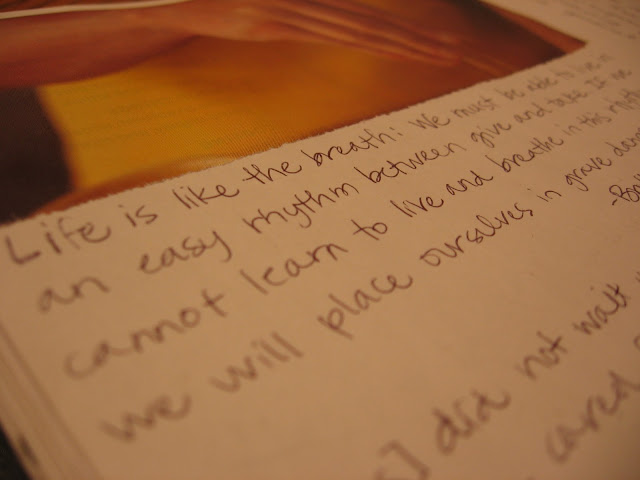 Life is like the breath: We must be able to live in
an easy rhythm between give and take. If we
cannot learn to live and breathe in this rhythm
we will place ourselves in grave
did not wait
cared